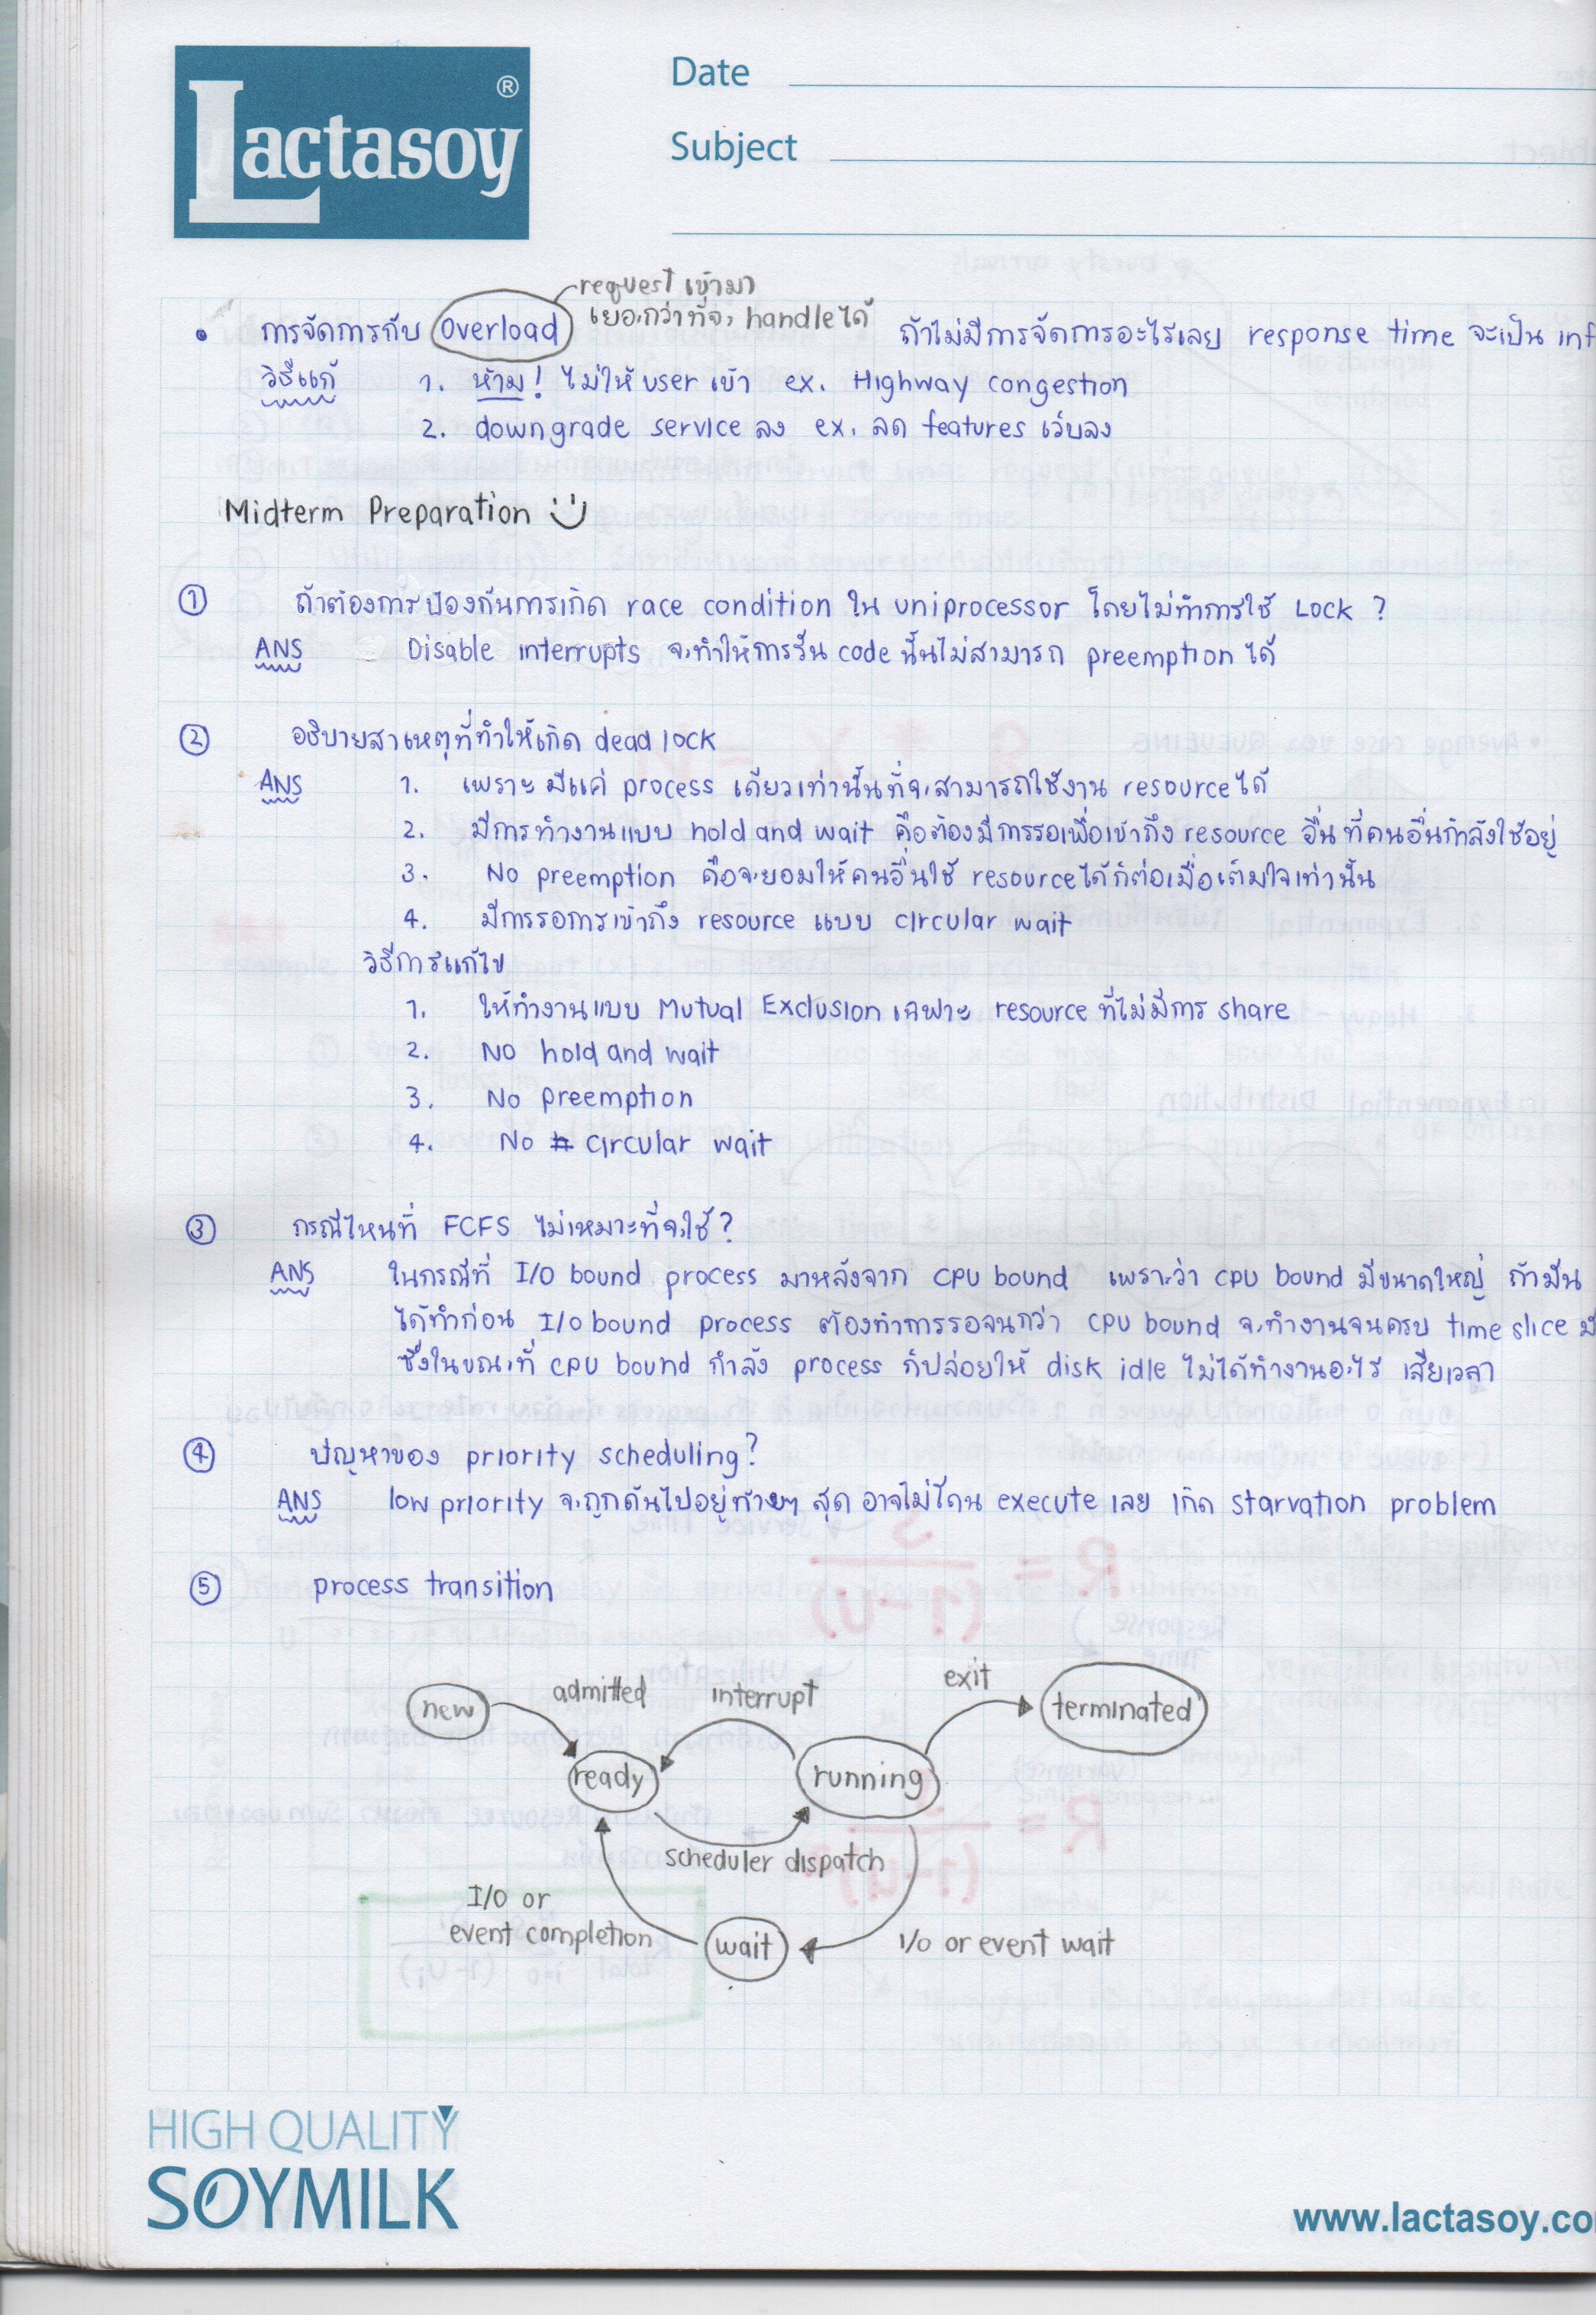 Lactasoy ®
Date
Subject
request เข้ามา
เยอะกว่าที่จะ handle ได้
• การจัดการกับ Overload ถ้าไม่มีการจัดการอะไรเลย response time จะเป็น inf
วิธีแก้ 1. ห้าม! ไม่ให้ user เข้า ex. Highway congestion
2. downgrade service ลง ex. ลด features เว็บลง
Midterm Preparation :)
① ถ้าต้องการป้องกันการเกิด race condition ใน uniprocessor โดยไม่ทำการใช้ Lock ?
ANS Disable interrupts จะทำให้การรัน code นั้นไม่สามารถ preemption ได้
② อธิบายสาเหตุที่ทำให้เกิด dead lock
ANS 1. เพราะ มีแค่ process เดียวเท่านั้นที่จะสามารถใช้งาน resource ได้
2. มีการทำงานแบบ hold and wait คือต้องมีการรอเพื่อเข้าถึง resource อื่น ที่คนอื่นกำลังใช้อยู่
3. No preemption คือจะยอมให้คนอื่นใช้ resource ได้ก็ต่อเมื่อเต็มใจเท่านั้น
4. มีการรอการเข้าถึง resource แบบ circular wait
วิธีการแก้ไข
1. ให้ทำงานแบบ Mutual Exclusion เฉพาะ resource ที่ไม่มีการ share
2. No hold and wait
3. No preemption
4. No circular wait
③ กรณีไหนที่ FCFS ไม่เหมาะที่จะใช้ ?
ANS ในกรณีที่ I/O bound process มาหลังจาก CPU bound เพราะว่า CPU bound มีขนาดใหญ่ ถ้ามัน
ได้ทำก่อน I/O bound process ต้องทำการรอจนกว่า CPU bound จะทำงานจนครบ time slice มั
ซึ่งในขณะที่ CPU bound กำลัง process ก็ปล่อยให้ disk idle ไม่ได้ทำงานอะไร เสียเวลา
④ ปัญหาของ priority scheduling ?
ANS low priority จะถูกดันไปอยู่ท้ายๆ สุด อาจไม่โดน execute เลย เกิด starvation problem
⑤ process transition
new admitted interrupt exit terminated
ready running
scheduler dispatch
I/O or
event completion wait I/O or event wait
HIGH QUALITY
SOYMILK
www.lactasoy.co